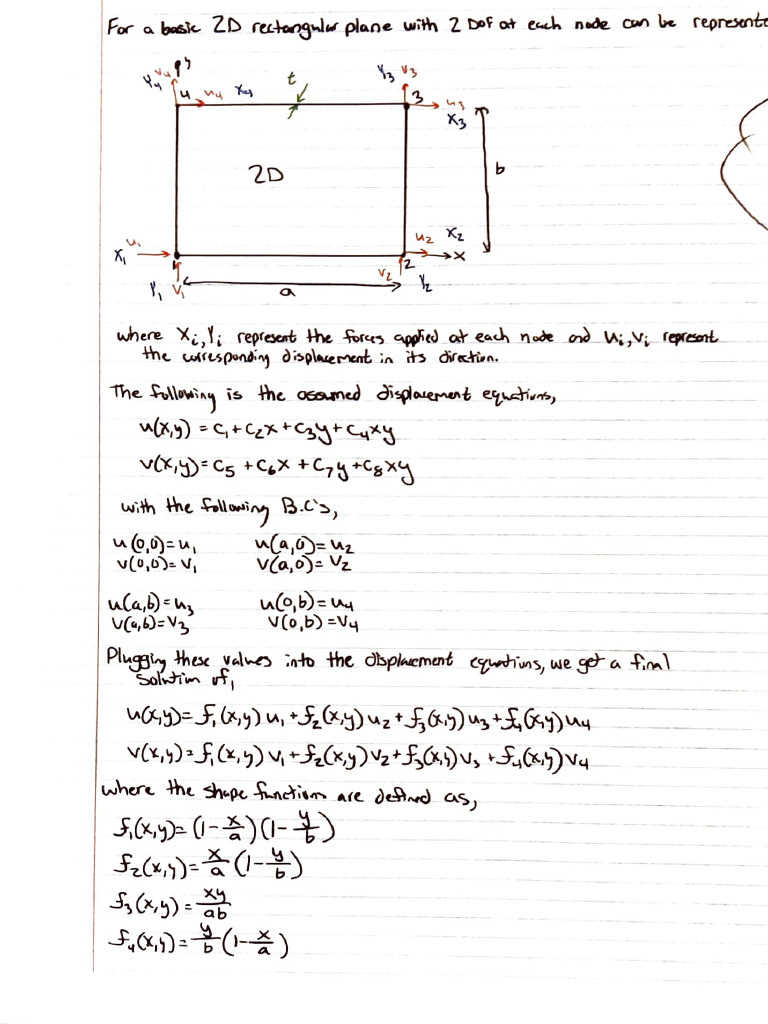 For a basic 2D rectangular plane with 2 DoF at each node can be represente
y
Y₄ v₄
4 u₄ X₄
t
Y₃ v₃
3 u₃
X₃
2D
b
u₁
X₁
1
Y₁ v₁
a
u₂ X₂
x
v₂ 2
Y₂
where Xᵢ,Yᵢ represent the forces applied at each node and uᵢ,vᵢ represent
the corresponding displacement in its direction.
The following is the assumed displacement equations,
u(x,y) = c₁+c₂x+c₃y+c₄xy
v(x,y)= c₅ +c₆x +c₇y+c₈xy
with the following B.C's,
u(0,0)=u₁ u(a,0)=u₂
v(0,0)=v₁ v(a,0)=v₂
u(a,b)=u₃ u(0,b)=u₄
v(a,b)=v₃ v(0,b)=v₄
Plugging these values into the displacment equations, we get a final
solution of,
u(x,y)=f₁(x,y)u₁+f₂(x,y)u₂+f₃(x,y)u₃+f₄(x,y)u₄
v(x,y)=f₁(x,y)v₁+f₂(x,y)v₂+f₃(x,y)v₃+f₄(x,y)v₄
where the shape functions are defined as,
f₁(x,y)=(1-x/a)(1-y/b)
f₂(x,y)=x/a(1-y/b)
f₃(x,y)=xy/ab
f₄(x,y)=y/b(1-x/a)